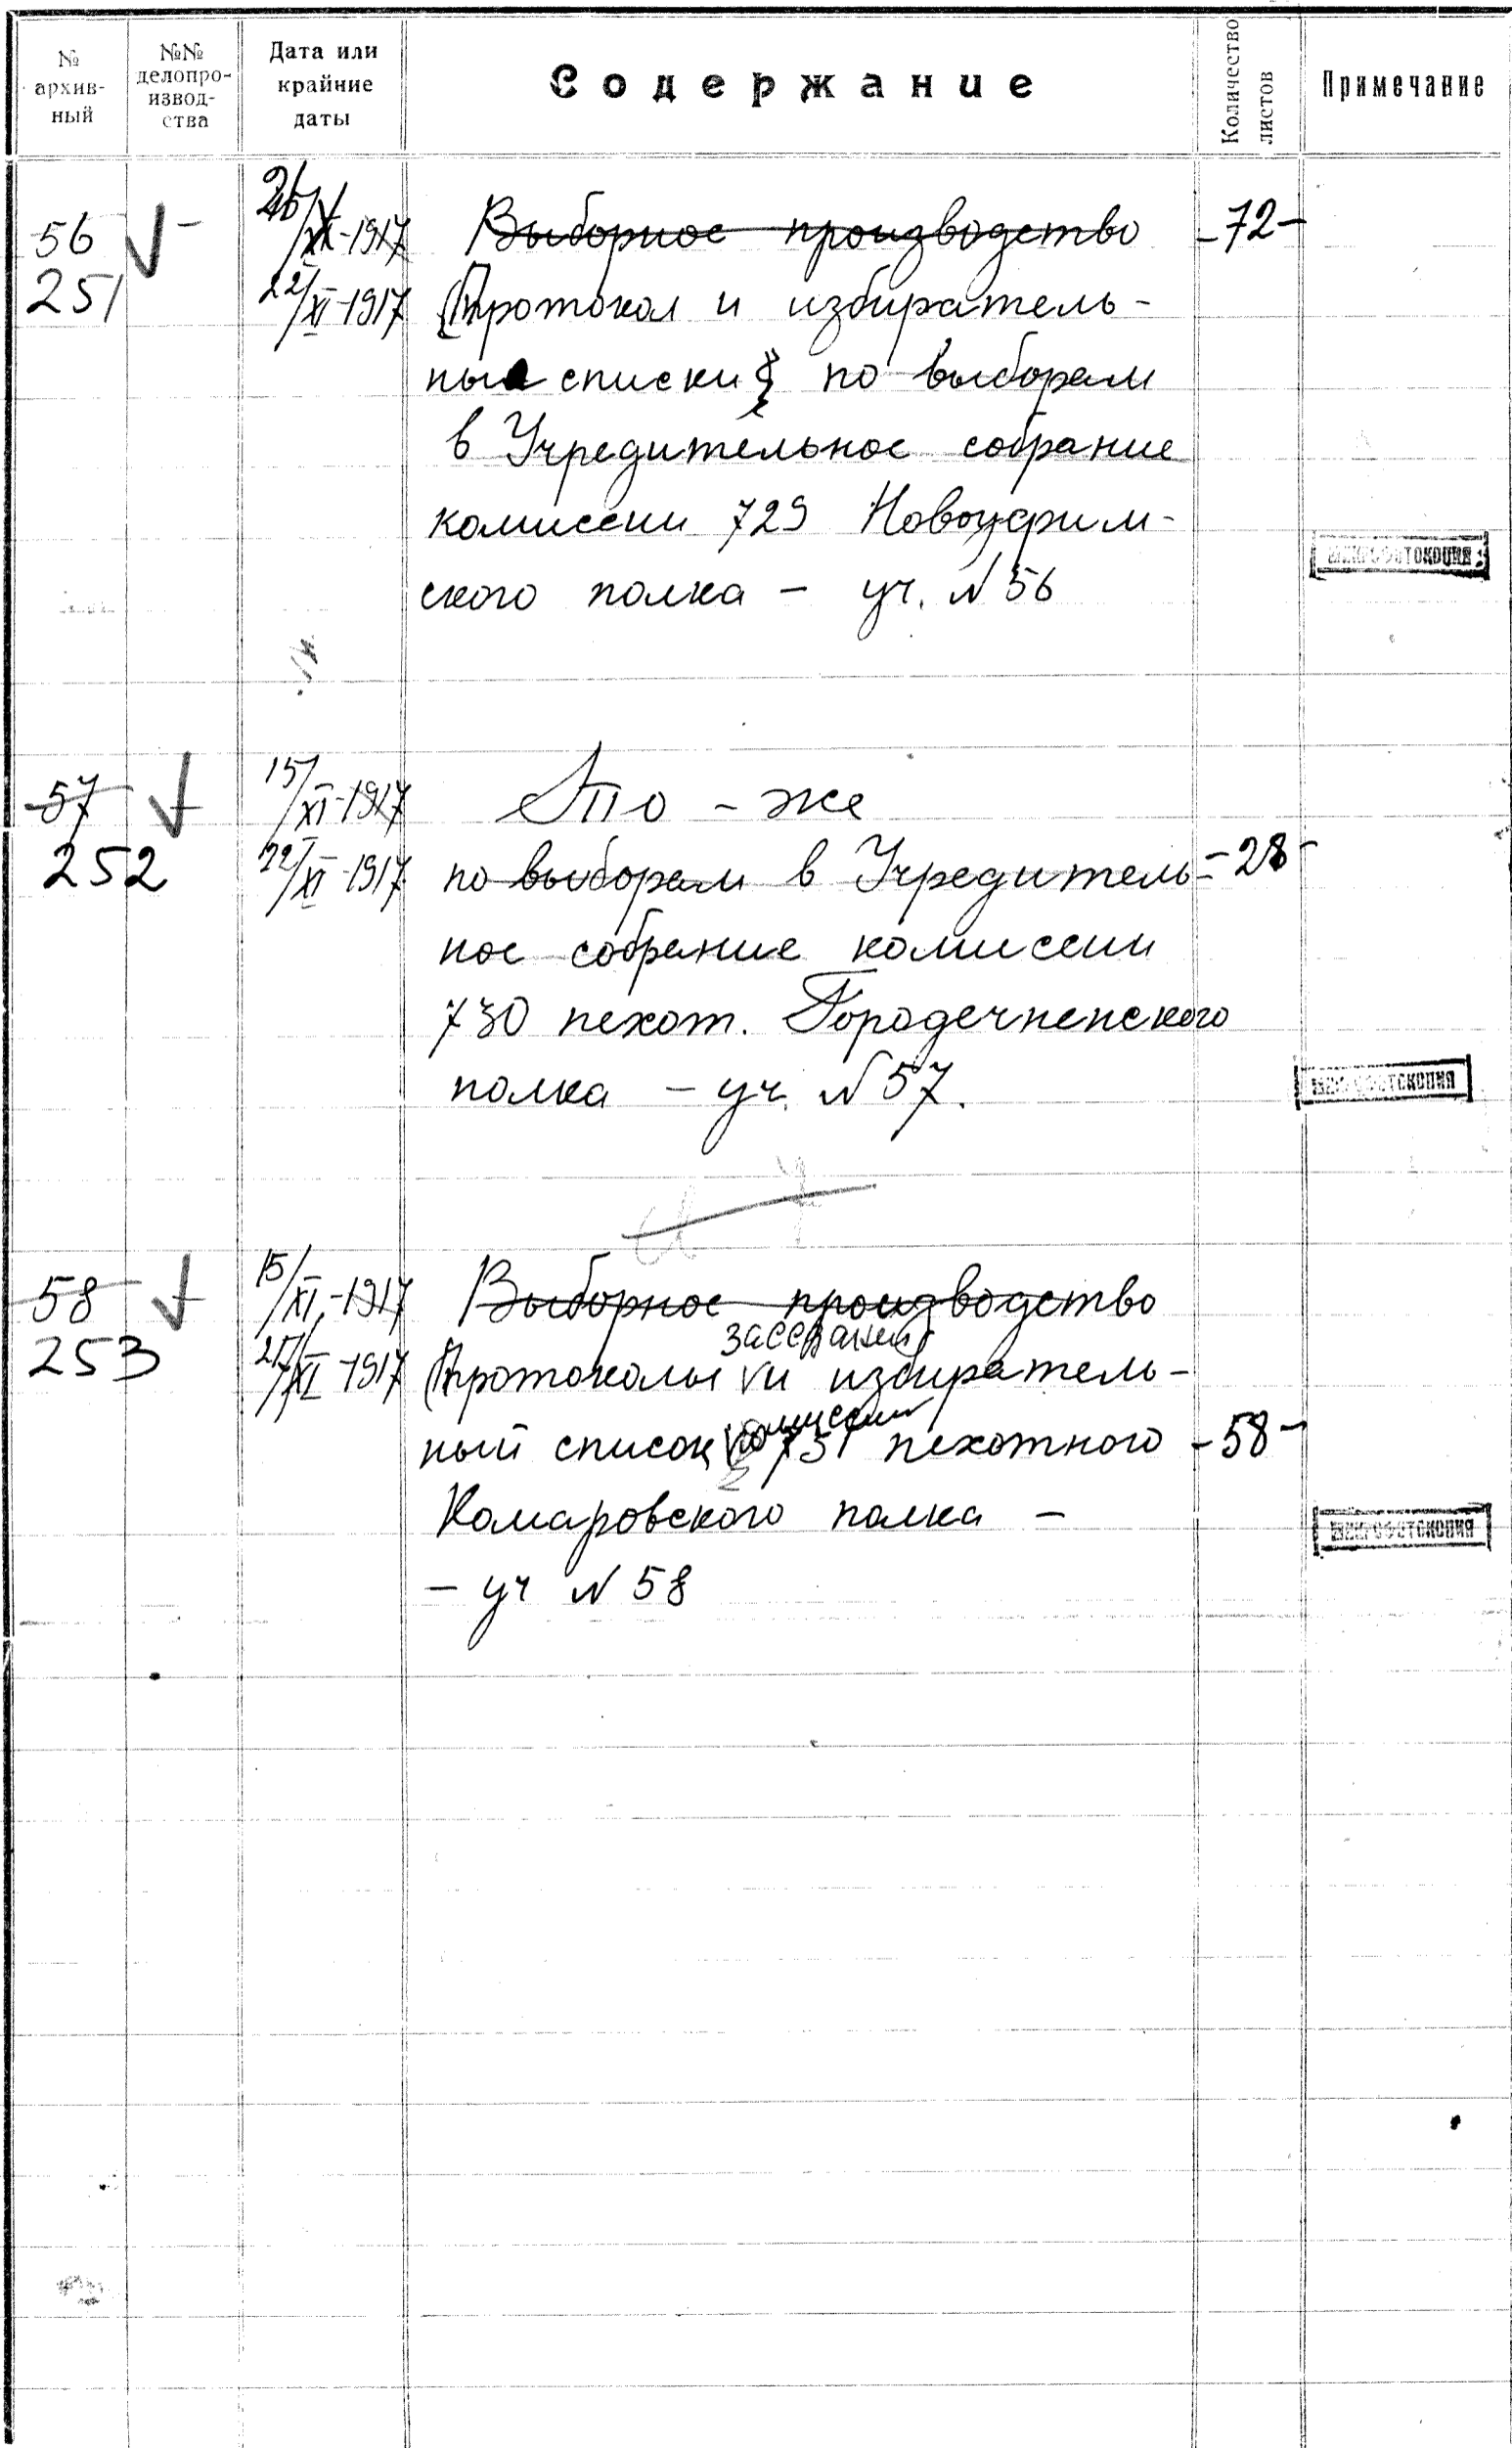 № архив-ный
№№ делопро-извод-ства
Дата или крайние даты
Содержание
Количество листов
Примечание
56
251
26/X-1917
22/XI-1917
Выборное производство
-72-
(Протокол и избиратель-
ные списки) по выборам
в Учредительное собрание
комиссии 729 Новоуфим-
ского полка - уч. N 56
МИКРОФОТОКОПИЯ
57
252
15/XI-1917
22/XI-1917
То-же
по выборам в Учредитель-
-28-
ное собрание комиссии
730 пехот. Городечненского
полка - уч. N 57.
МИКРОФОТОКОПИЯ
58
253
15/XI-1917
XI-1917
Выборное производство
заседаний
(Протоколы и избиратель-
комиссии
ный список 731 пехотного
-58-
Комаровского полка -
- уч N 58
МИКРОФОТОКОПИЯ